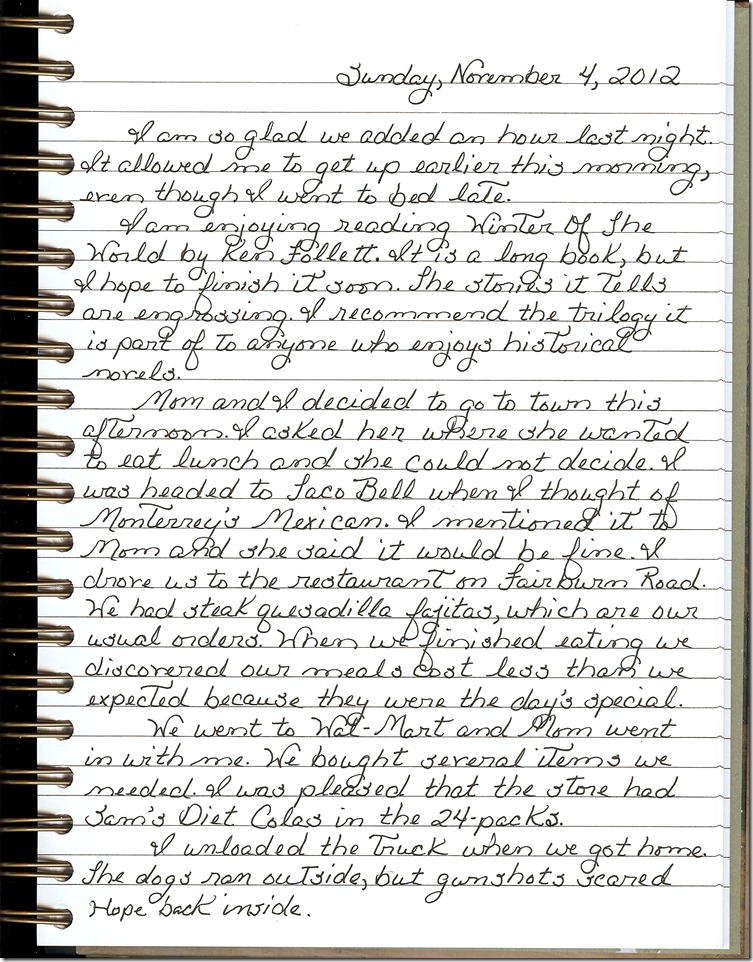 Sunday, November 4, 2012
I am so glad we added an hour last night.
It allowed me to get up earlier this morning,
even though I went to bed late.
I am enjoying reading Winter Of The
World by Ken Follett. It is a long book, but
I hope to finish it soon. The stories it tells
are engrossing. I recommend the trilogy it
is part of to anyone who enjoys historical
novels.
Mom and I decided to go to town this
afternoon. I asked her where she wanted
to eat lunch and she could not decide. I
was headed to Taco Bell when I thought of
Monterrey's Mexican. I mentioned it to
Mom and she said it would be fine. I
drove us to the restaurant on Fairburn Road.
We had steak quesadilla fajitas, which are our
usual orders. When we finished eating we
discovered our meals cost less than we
expected because they were the day's special.
We went to Wal-Mart and Mom went
in with me. We bought several items we
needed. I was pleased that the store had
Sam's Diet Colas in the 24-packs.
I unloaded the truck when we got home.
The dogs ran outside, but gunshots scared
Hope back inside.